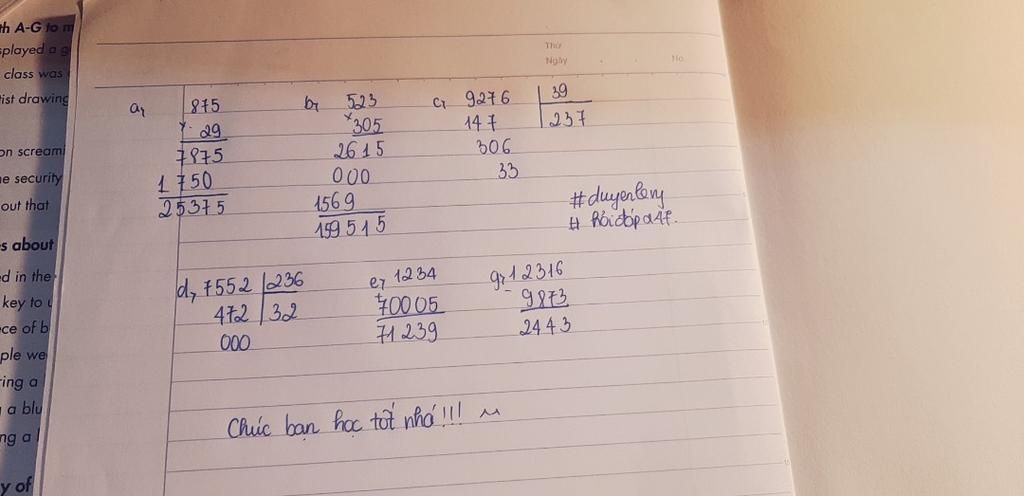 th A-G to m
splayed a g
class was
tist drawing
on screami
e security
out that
s about
d in the
key to
ce of b
ple we
ring a
a blu
ng a
y of
Thứ
Ngày
No.
a, 875
x 29
7875
1750
25375
b, 523
x 305
2615
000
1569
159515
c, 9276 39
147 237
306
33
#duyenlamy
# hỏi đáp a4f.
d, 7552 236
472 32
000
e, 1234
+ 70005
71239
g, 12316
- 9873
2443
Chúc bạn học tốt nhá!!! ~